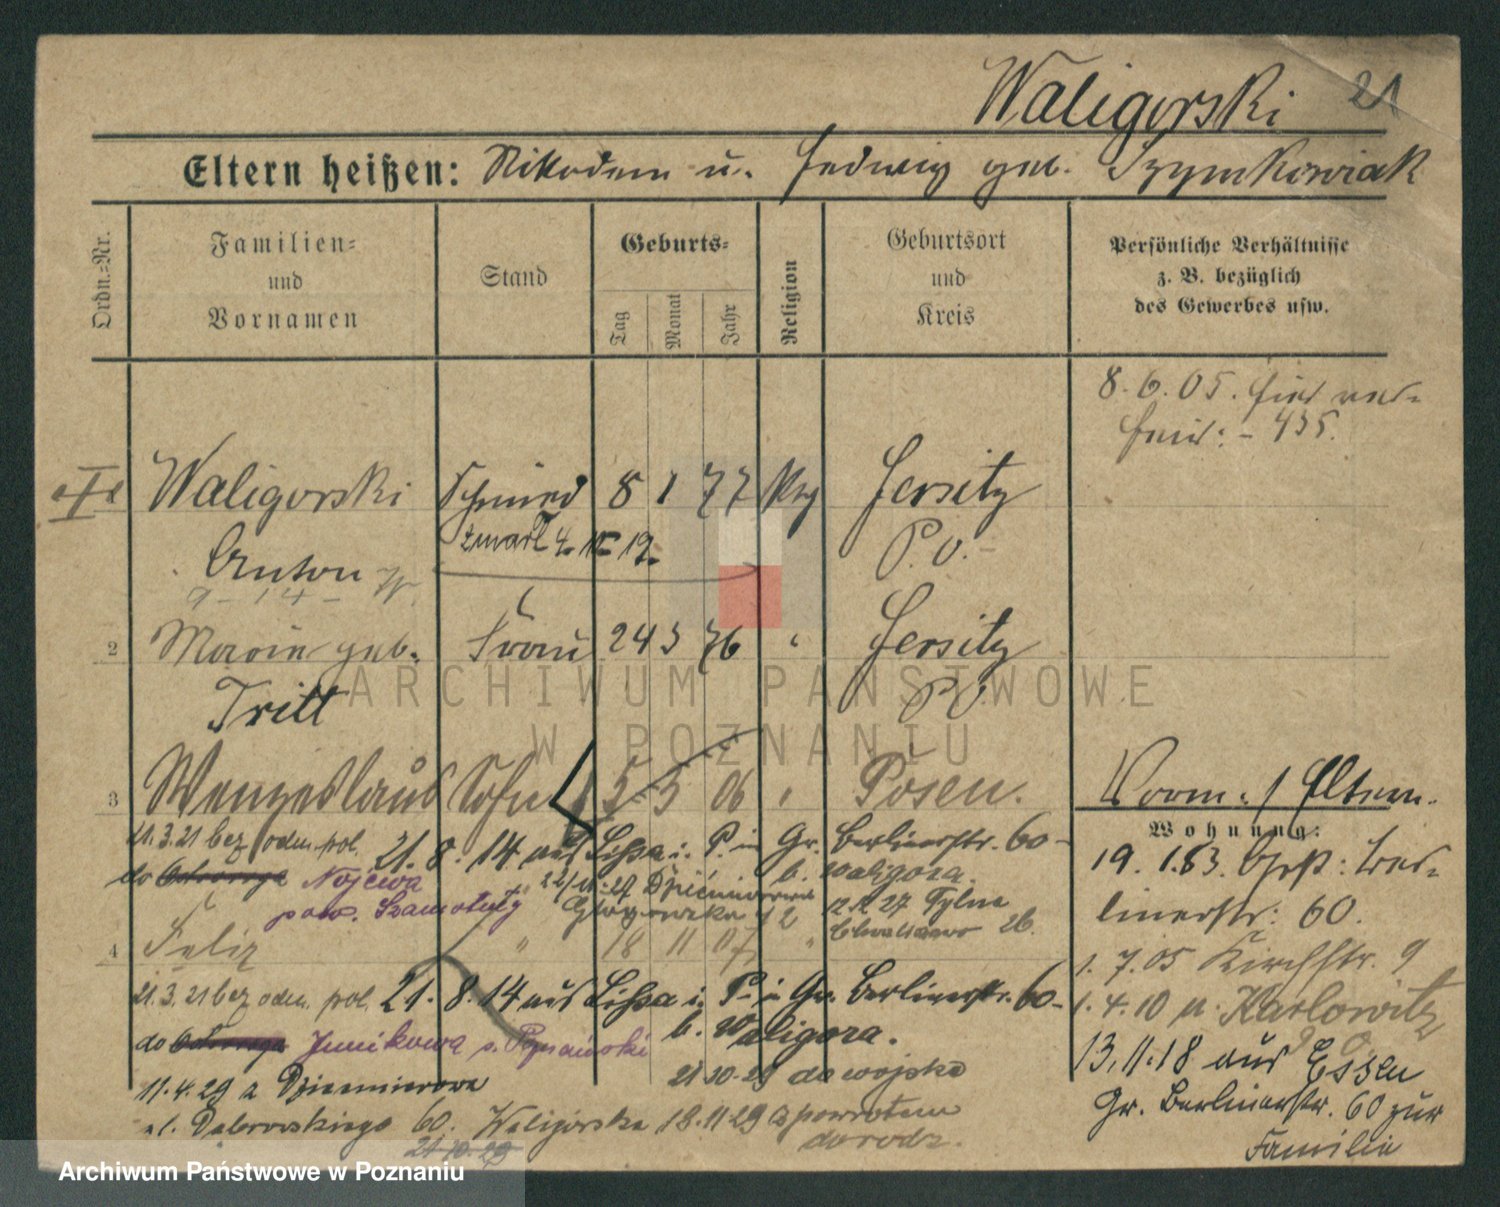 Waligorski 21
Eltern heißen: Nikodem u. Hedwig geb. Szymkowiak
Ordn.-Nr.
Familien- und Vornamen
Stand
Geburts-
Tag
Monat
Jahr
Religion
Geburtsort und Kreis
Persönliche Verhältnisse z. B. bezüglich des Gewerbes usw.
8. 6. 05. hier
435.
Waligorski Schmied 8 1 77 Jersitz
zmarł 4. 12.
Anton P. O.
2 Maria geb. Frau 24 3 76 " Jersitz
Tritt P O
3 Wenzeslaus Sohn 5 5 06 " Posen.
Vorm. / Eltern.
Wohnung:
21.3.21 bez odm. pol. 21. 8. 14. aus Lissa i. P. in Gr. Berlinerstr. 60 -
do Nojewa b. Waligora.
pow. Szamotuły Głogowska 12.12 27 Tylne
Chwaliszewo 26.
19. 1. 83. Ber-
linerstr: 60.
4 Felix " 18 11 07 "
1. 7. 05 Kirchstr. 9
21.3.21 bez odm. pol. 21. 8. 14 aus Lissa i. P. in Gr. Berlinerstr. 60 -
1. 4. 10 n. Karlowitz
do Junikowa p. Poznański b. Waligora.
13. 11. 18 aus Essen
11. 4. 29 z do wojska
Gr. Berlinerstr. 60 zur
Familie
ul. Dąbrowskiego 60. Waligórska 18.11 29 z powrotem
do rodz.
21 10. 29
ARCHIWUM PAŃSTWOWE
W POZNANIU
Archiwum Państwowe w Poznaniu